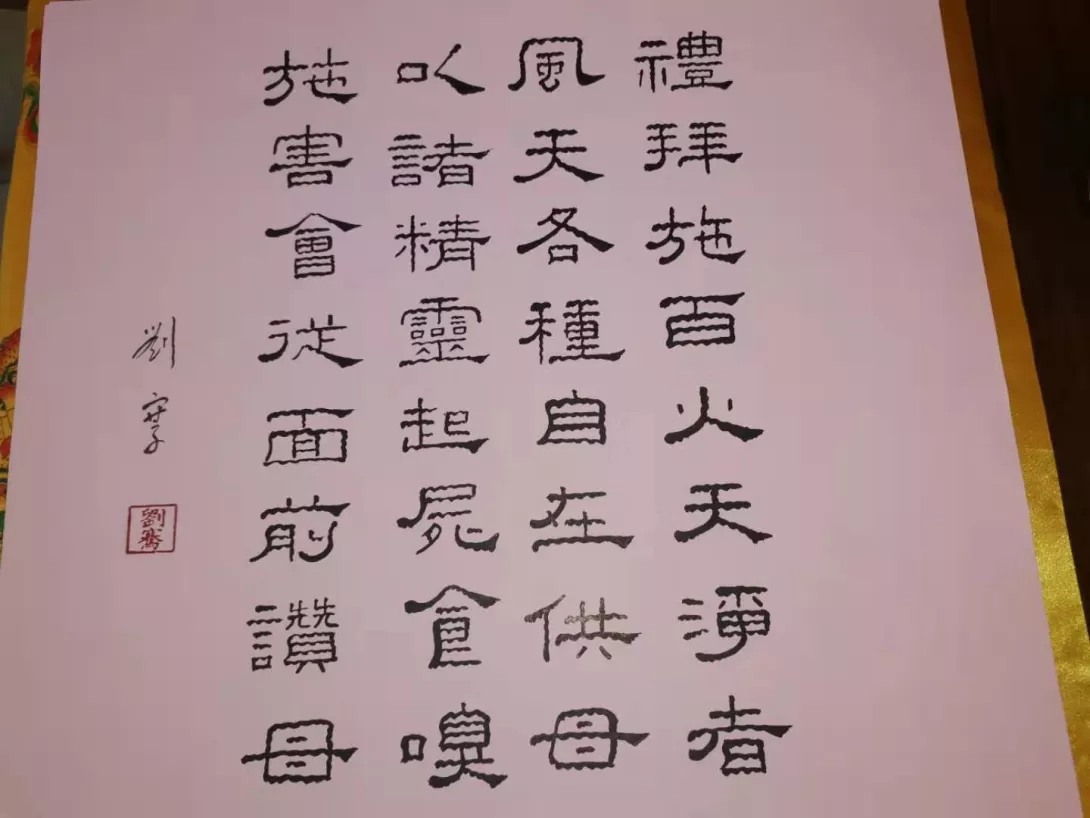 禮拜施百火天淨者
風天各種自在供母
以諸精靈起屍食嗅
施害會從面前讚母
劉
劉騫